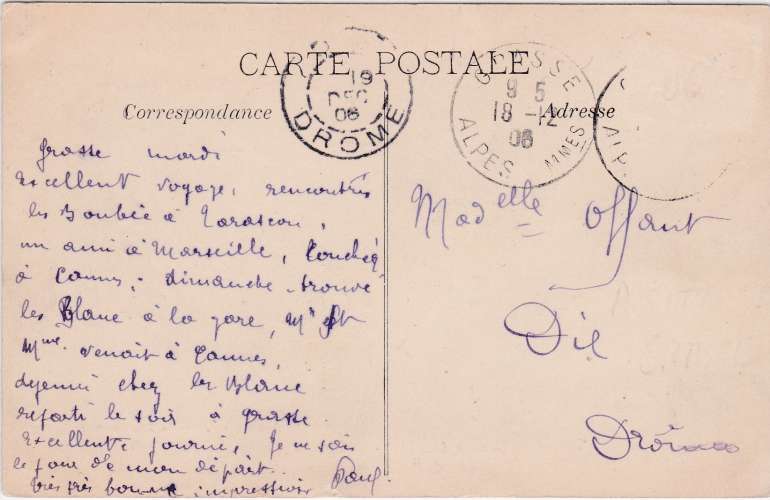 CARTE POSTALE
Correspondance
Adresse
19
DEC
06
DROME
GRASSE
9 5
18 -12
06
ALPES MMES
ALP
Grasse mardi
Excellent voyage, rencontrés
les à Tarascon,
un ami à Marseille, Couché
à Cannes, dimanche trouvé
les Blanc à la gare, Mr et
Mme venait à Cannes,
dejeuné chez les Blanc
reparti le soir à Grasse.
Excellente journée, Je ne sais
le jour de mon départ.
très très bonne impression Paul
Madelle Offant
Die
Drôme